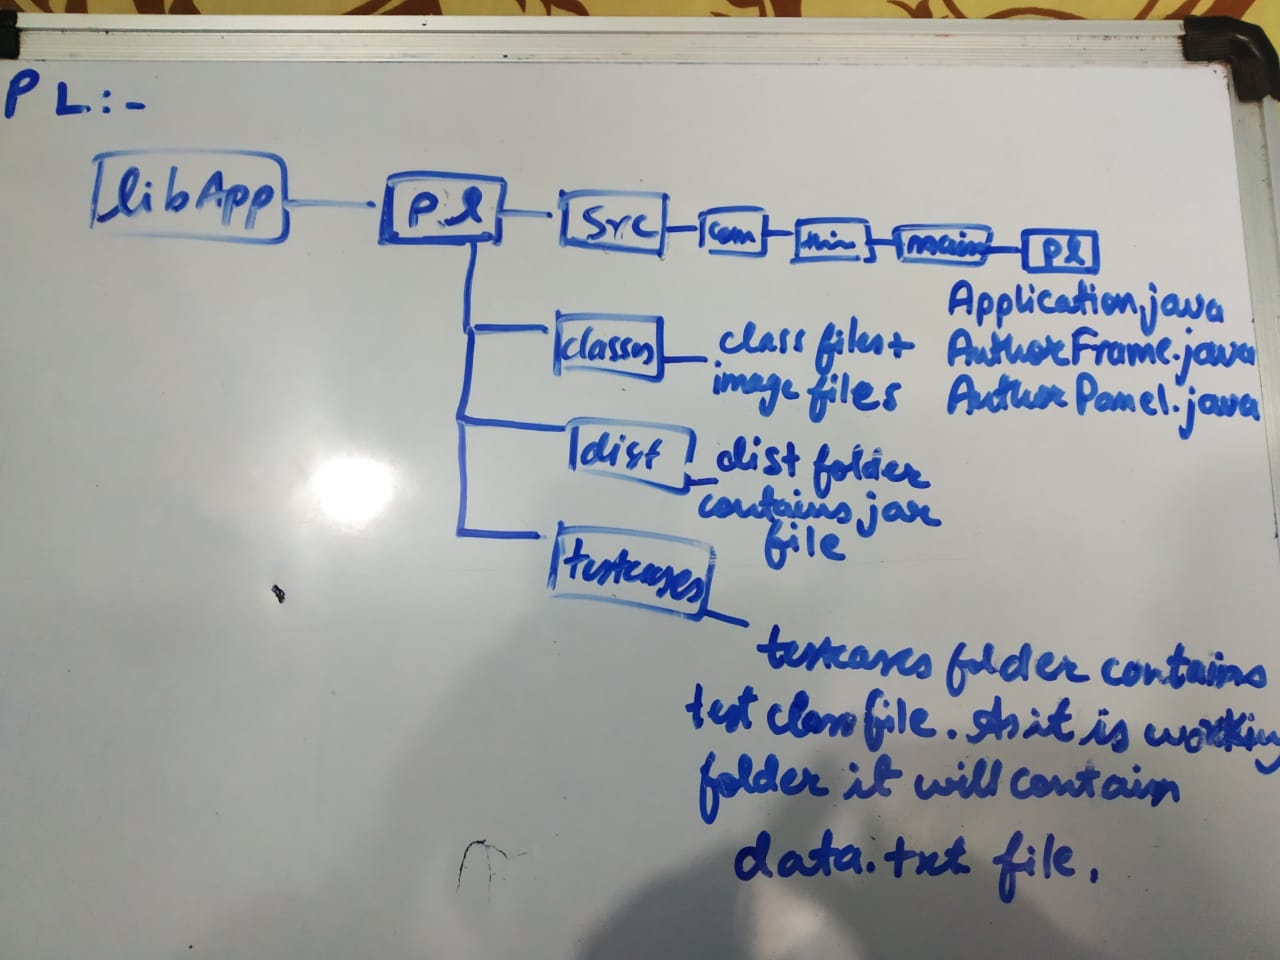 PL:-
libApp
pl
src
com
main
pl
Application.java
AuthorFrame.java
AuthorPanel.java
classes
class files +
image files
dist
dist folder
contains jar
file
testcases
testcases folder contains
test class file. As it is working
folder it will contain
data.txt file.